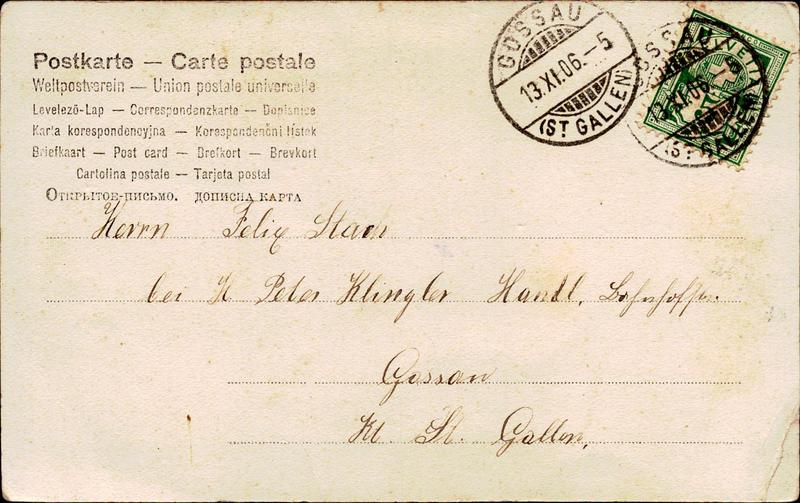 Postkarte — Carte postale
Weltpostverein — Union postale universelle
Levelező-Lap — Correspondenzkarte — Dopisnice
Karta korespondencyjna — Korespondenční lístek
Briefkaart — Post card — Brefkort — Brevkort
Cartolina postale — Tarjeta postal
Открытое-письмо. дописна карта
GOSSAU
13.XI.06.–5
(ST GALLEN)
GOSSAU
13.XI.06.–5
(ST GALLEN)
Herrn Felix Stach
bei H Peter Klingler Handl,
Gossau
Kt. St. Gallen,